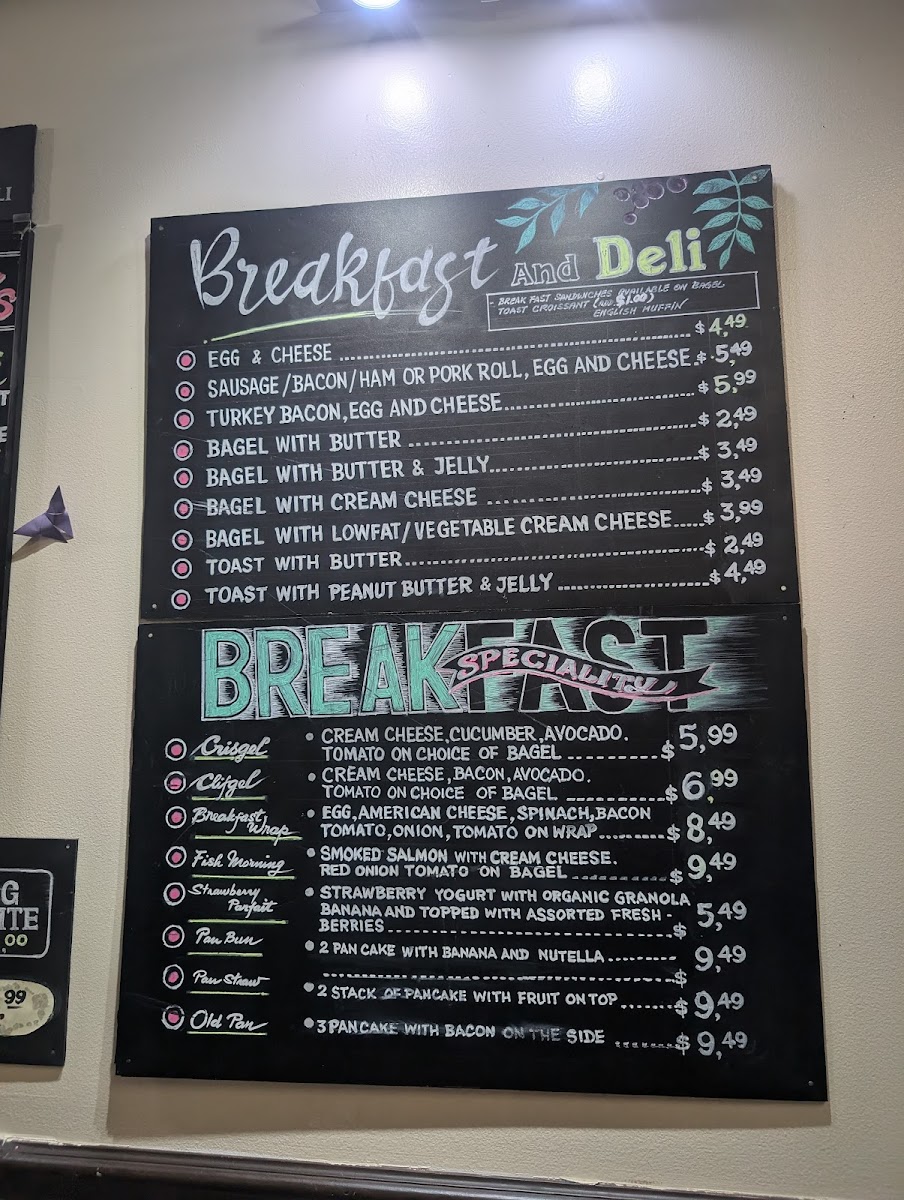 Breakfast And Deli
BREAK FAST SANDWICHES AVAILABLE ON BAGEL
TOAST CROISSANT (ADD $1.00)
ENGLISH MUFFIN
EGG & CHEESE $4,49
SAUSAGE/BACON/HAM OR PORK ROLL, EGG AND CHEESE $5,49
TURKEY BACON, EGG AND CHEESE $5,99
BAGEL WITH BUTTER $2,49
BAGEL WITH BUTTER & JELLY $3,49
BAGEL WITH CREAM CHEESE $3,49
BAGEL WITH LOWFAT/VEGETABLE CREAM CHEESE $3,99
TOAST WITH BUTTER $2,49
TOAST WITH PEANUT BUTTER & JELLY $4,49
BREAKFAST
SPECIALITY
Crisgel CREAM CHEESE, CUCUMBER, AVOCADO.
TOMATO ON CHOICE OF BAGEL $5,99
Clifgel CREAM CHEESE, BACON, AVOCADO.
TOMATO ON CHOICE OF BAGEL $6,99
Breakfast Wrap EGG, AMERICAN CHEESE, SPINACH, BACON
TOMATO, ONION, TOMATO ON WRAP $8,49
Fish Morning SMOKED SALMON WITH CREAM CHEESE.
RED ONION TOMATO ON BAGEL $9,49
Strawberry Parfait STRAWBERRY YOGURT WITH ORGANIC GRANOLA
BANANA AND TOPPED WITH ASSORTED FRESH-
BERRIES $5,49
Pan Bun 2 PAN CAKE WITH BANANA AND NUTELLA
$9,49
Pan Straw 2 STACK OF PANCAKE WITH FRUIT ON TOP $9,49
Old Pan 3 PANCAKE WITH BACON ON THE SIDE $9,49